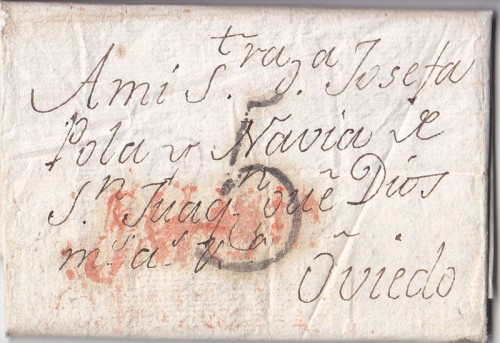 Ami S.ra D.a Josefa
Pola y Navia de
5
S.n Juaq.n que Dios
m.s a.s
Oviedo